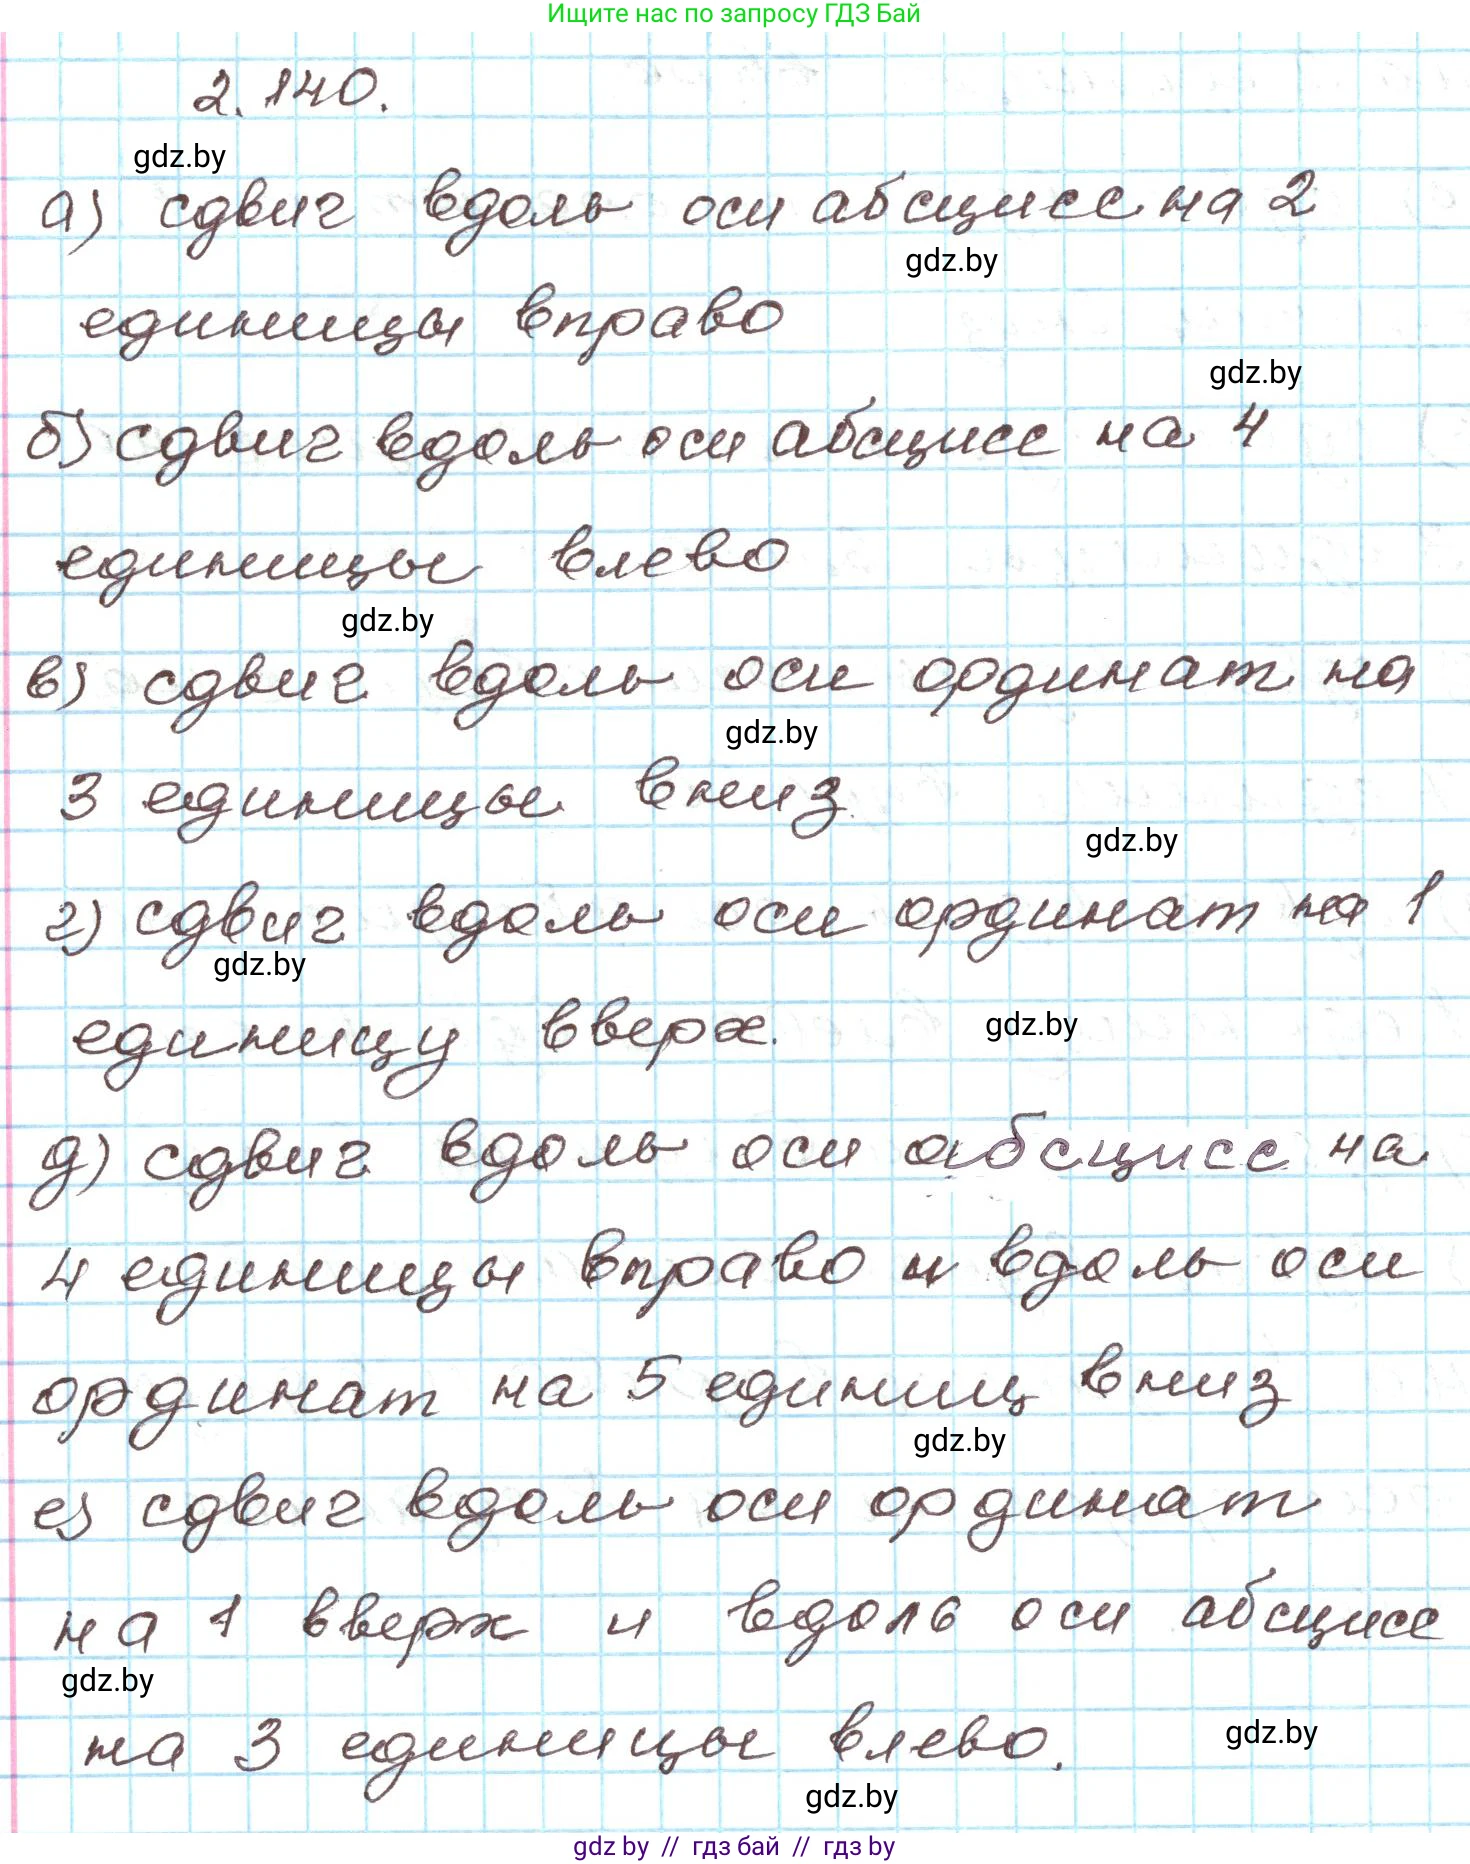 Ищите нас по запросу ГДЗ Бай
2.140.
gdz.by
а) сдвиг вдоль оси абсцисс на 2
gdz.by
единицы вправо
gdz.by
б) сдвиг вдоль оси абсцисс на 4
единицы влево
gdz.by
в) сдвиг вдоль оси ординат на
gdz.by
3 единицы вниз.
gdz.by
г) сдвиг вдоль оси ординат на 1
gdz.by
единицу вверх.
gdz.by
д) сдвиг вдоль оси абсцисс на
4 единицы вправо и вдоль оси
ординат на 5 единиц вниз
gdz.by
е) сдвиг вдоль оси ординат
на 1 вверх и вдоль оси абсцисс
gdz.by
на 3 единицы влево.
gdz.by
gdz.by
gdz by // гдз бай // гдз by